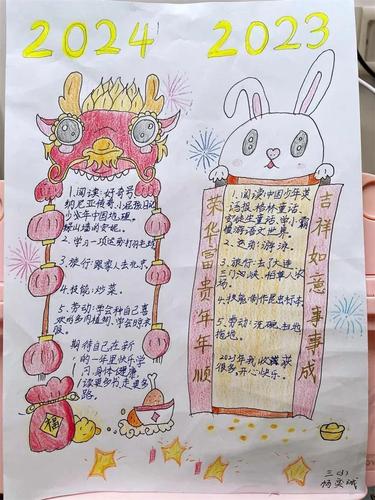 2024
2023
1.阅读:好奇号
纳尼亚传奇、小屁孩日记
少年中国地理。
绿山墙的安妮。
2.学习一项运动打羽毛球
3.旅行:跟家人去北京。
4.技能:炒菜。
5.劳动:学会种自己喜
欢的多肉植物,学会时
服。
期待自己在新
的一年里快乐学
习,身体健康,
读更多书,走更多
路。
福
荣华富贵年年顺
1.阅读:中国少年英
语报、格林童话、
安徒生童话、学小霸
慢游语文世界。
2.运动:游泳。
3.旅行:去了大连
三门
4.技能:制作昆虫标本
5.劳动:洗碗、扫地、
拖地。
2023年我收获
很多,开心快乐。
吉祥如意事事成
三(1)
杨奕城